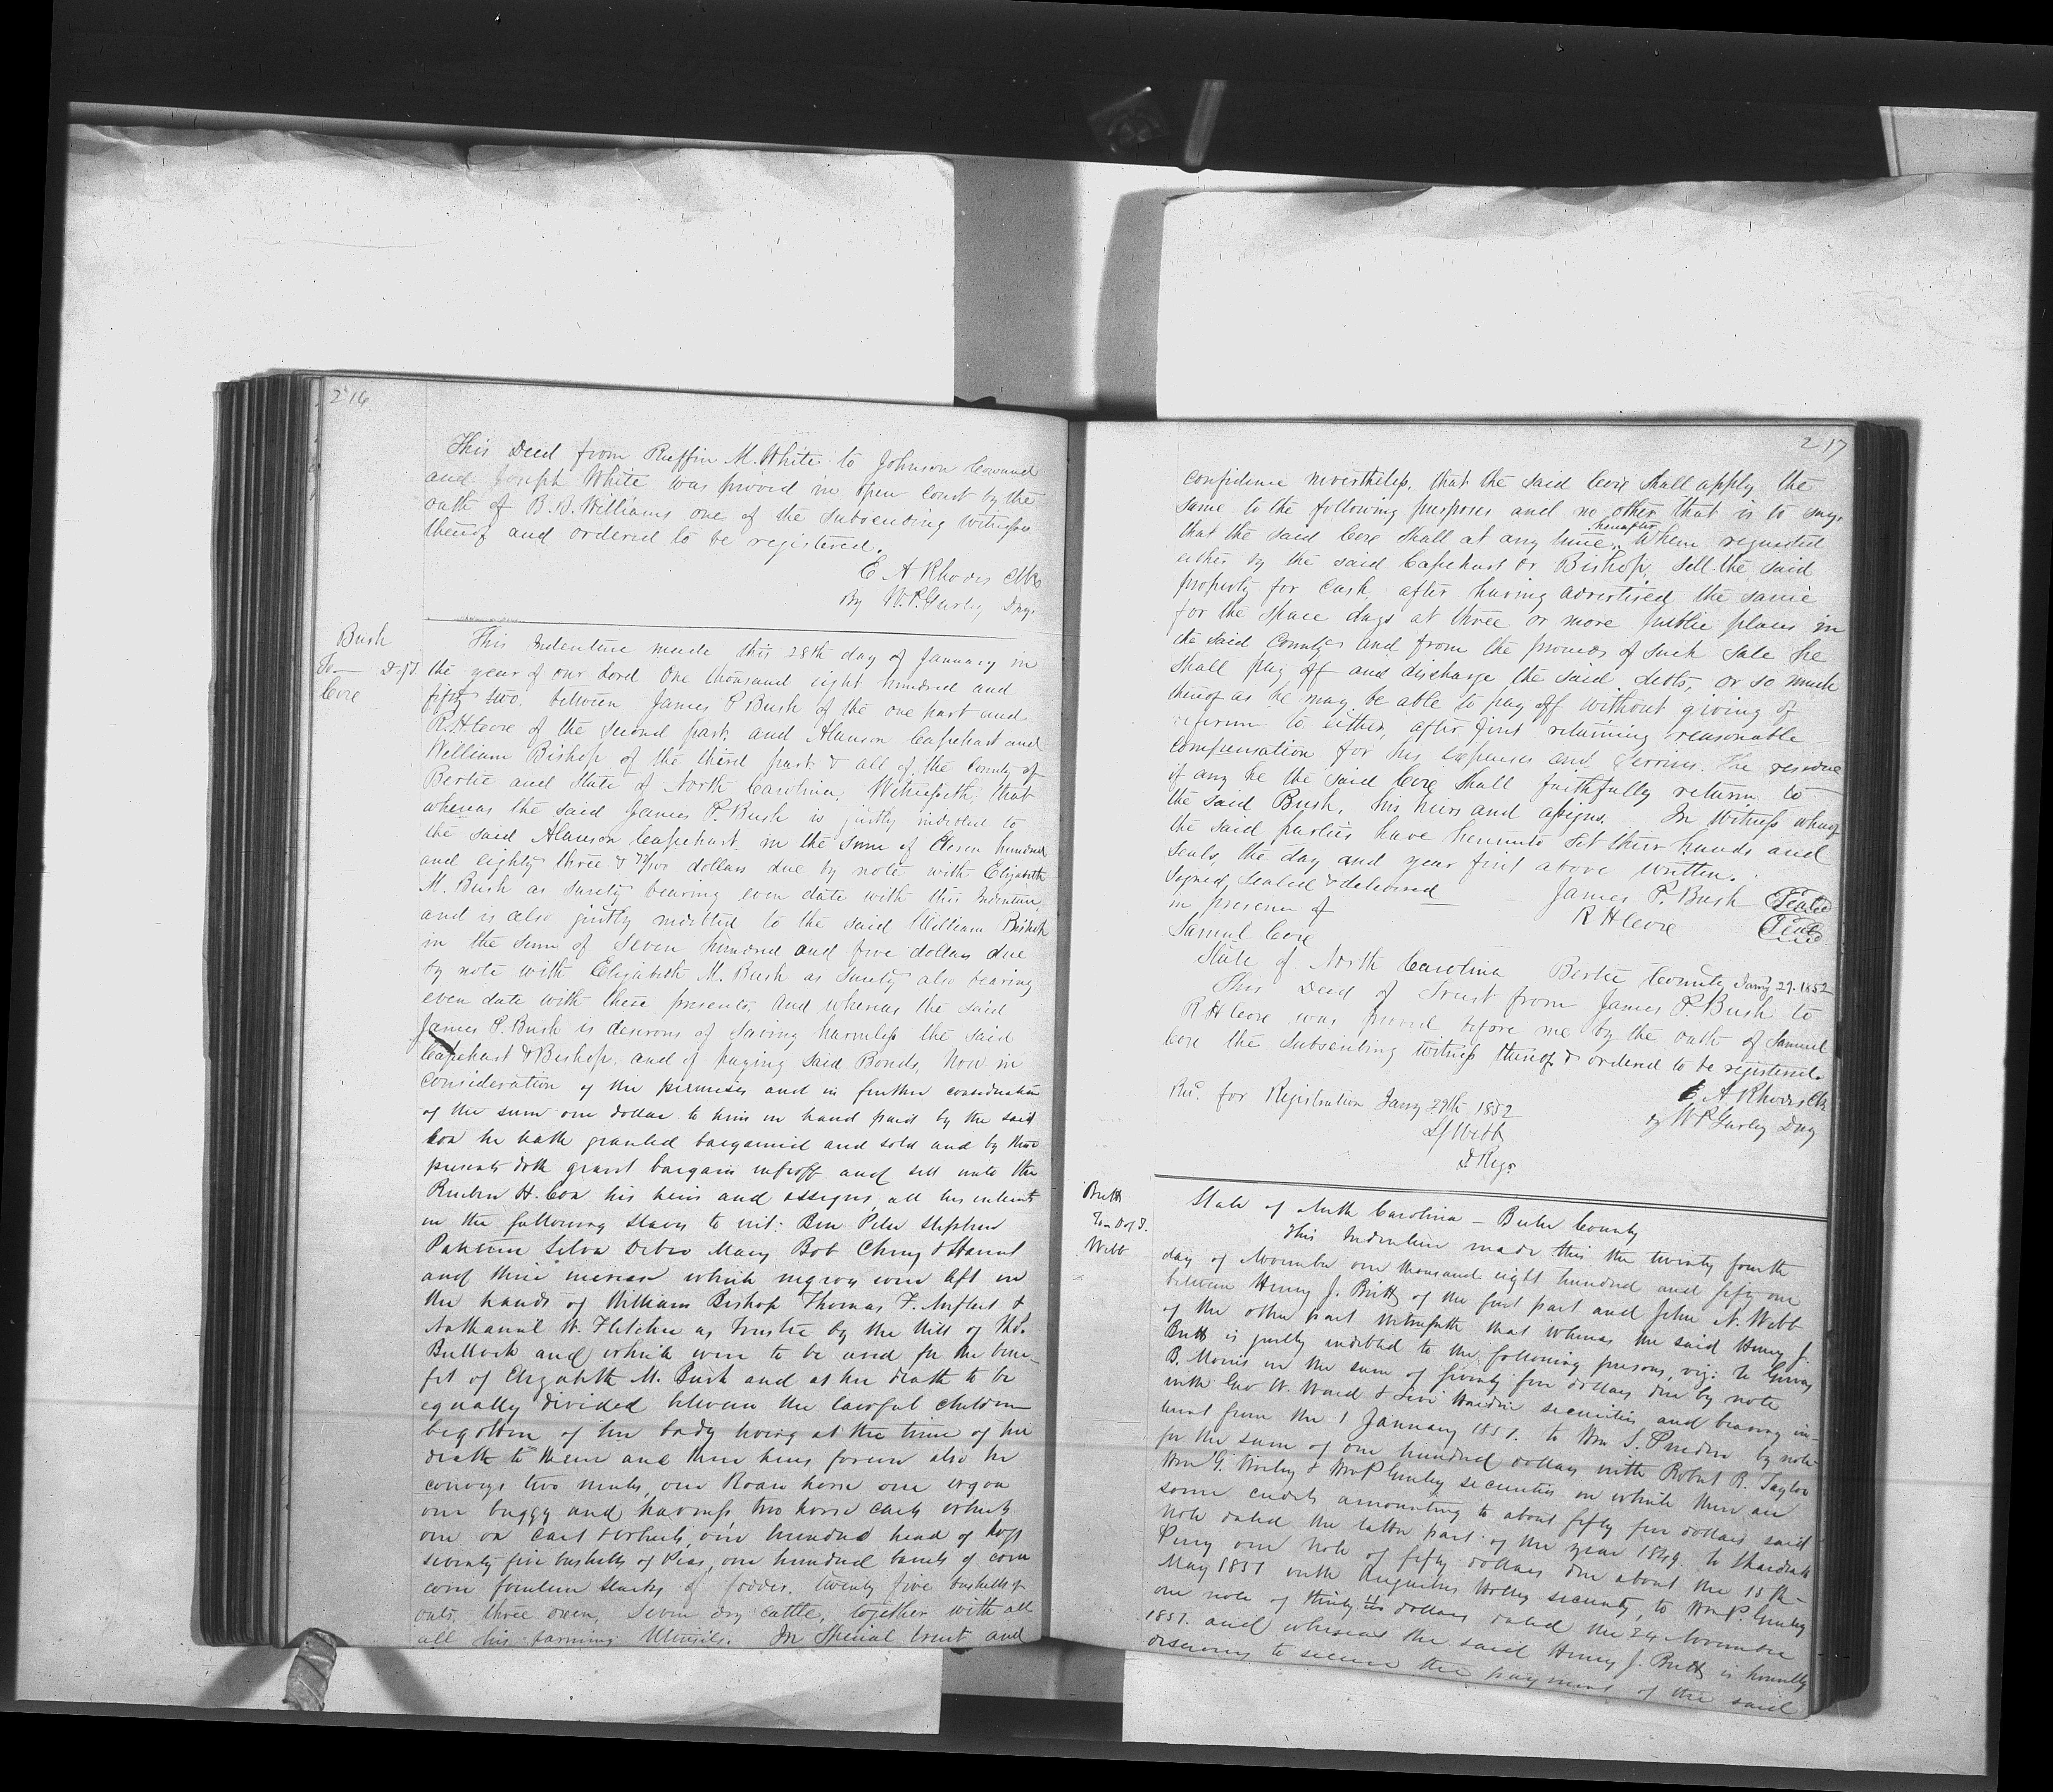 216
This Deed from Ruffin M. White to Johnson Cowand
and Joseph White was proved in open Court by the
oath of B. B. Williams one of the subscribing witnesses
thereof and ordered to be registered.
E A Rhodes Clk
By W. P. Gurley Dpy.
Bush
To D of T.
Cox
This Indenture made this 28th day of January in
the year of our Lord One thousand eight hundred and
fifty two, between James P Bush of the one part and
R. H. Cox of the second part and Alanson Capehart and
William Bishop of the third part & all of the County of
Bertie and State of North Carolina, Witnesseth, that
whereas the said James P. Bush is justly indebted to
the said Alanson Capehart in the sum of Eleven hundred
and eighty three & /100 dollars due by note with Elizabeth
M. Bush as surety bearing even date with this Indenture,
and is also justly indebted to the said William Bishop
in the sum of Seven hundred and five dollars due
by note with Elizabeth M. Bush as surety also bearing
even date with these presents, and whereas the said
James P. Bush is desirous of saving harmless the said
Capehart & Bishop and of paying said Bonds, Now in
consideration of the premises and in further consideration
of the sum one dollar to him in hand paid by the said
Cox he hath granted bargained and sold and by these
presents doth grant bargain enfeoff and sell unto the
Reuben H. Cox his heirs and assigns, all his interest
in the following slaves to wit: Ben Peter Stephen
Patience Silva Mary Bob & Harriet
and their increase which negroes were left in
the hands of William Bishop Thomas F. Norfleet &
Nathaniel W. Fletcher as Trustee by the Will of Thos.
Bullock and which were to be used for the bene-
fit of Elizabeth M. Bush and at her death to be
equally divided between the lawful children
begotten of her body living at the time of her
death to them and their heirs forever also he
conveys two mules, one Roan horse one wagon
one buggy and harness two horse carts wheels
one ox cart & wheels, one hundred head of hogs
seventy five bushells of Peas, one hundred barrels of corn
corn fourteen stacks of fodder, twenty five bushells of
oats, three oxen, seven dry cattle, together with all
all his farming Utensils. In Special trust and
217
confidence nevertheless, that the said Cox shall apply the
same to the following purposes and no other that is to say,
that the said Cox shall at any time hereafter When requested
either by the said Capehart or Bishop, sell the said
property for Cash, after having advertised the same
for the space days at three or more public places in
the said County and from the proceeds of such sale he
shall pay off and discharge the said debts, or so much
thereof as he may be able to pay off without giving of
to either, after first retaining reasonable
compensation for his expenses and services. The residue
if any he the said Cox shall faithfully return to
the said Bush, his heirs and assigns. In Witness whereof
the said parties have hereunto set their hands and
seals, the day and year first above written.
Signed, sealed & delivered James P. Bush Seal
in presence of R H Cox Seal
Samuel Cox
State of North Carolina Bertie County Jany 29. 1852
This Deed of Trust from James P. Bush to
R H Cox was proved before me by the oath of Samuel
Cox the subscribing witness thereof & ordered to be registered.
E A Rhodes Clk
by W P Gurley Dpy
Recd. for Registration Jany 29th 1852
Webb
D Regr.
Britt
To D of T.
Webb
State of North Carolina - Bertie County
This Indenture made this the twenty fourth
day of November one thousand eight hundred and fifty one
between Henry J. Britt of the first part and John N. Webb
of the other part Witnesseth that whereas the said Henry J.
Britt is justly indebted to the following persons, viz: to
B. Morris in the sum of seventy five dollars due by note
with Geo W. Ward & Levi securities and bearing in-
terest from the 1 January 1851. to Wm S. by note
for the sum of one hundred dollars with Robert R. Taylor
Wm G. Worley & Wm P Gurley securities on which there are
some credits amounting to about fifty five dollars said
note dated the latter part of the year 1849. to Shadrack
Perry one note of fifty dollars due about the 15th
May 1851 with Augustus Holley security, to Wm P. Gurley
one note of thirty dollars dated the 24 November
1851. and whereas the said Henry J. Britt is honestly
desirous to secure the payment of the said